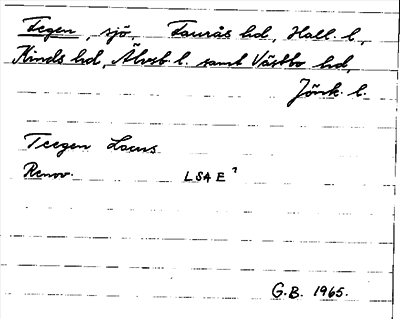 Fegen, sjö, Faurås hd, Hall. l.,
Kinds hd, Älvsb. l. samt Västbo hd,
Jönk. l.
Feegen Lacus
Renov. LSA E?
G.B. 1965.